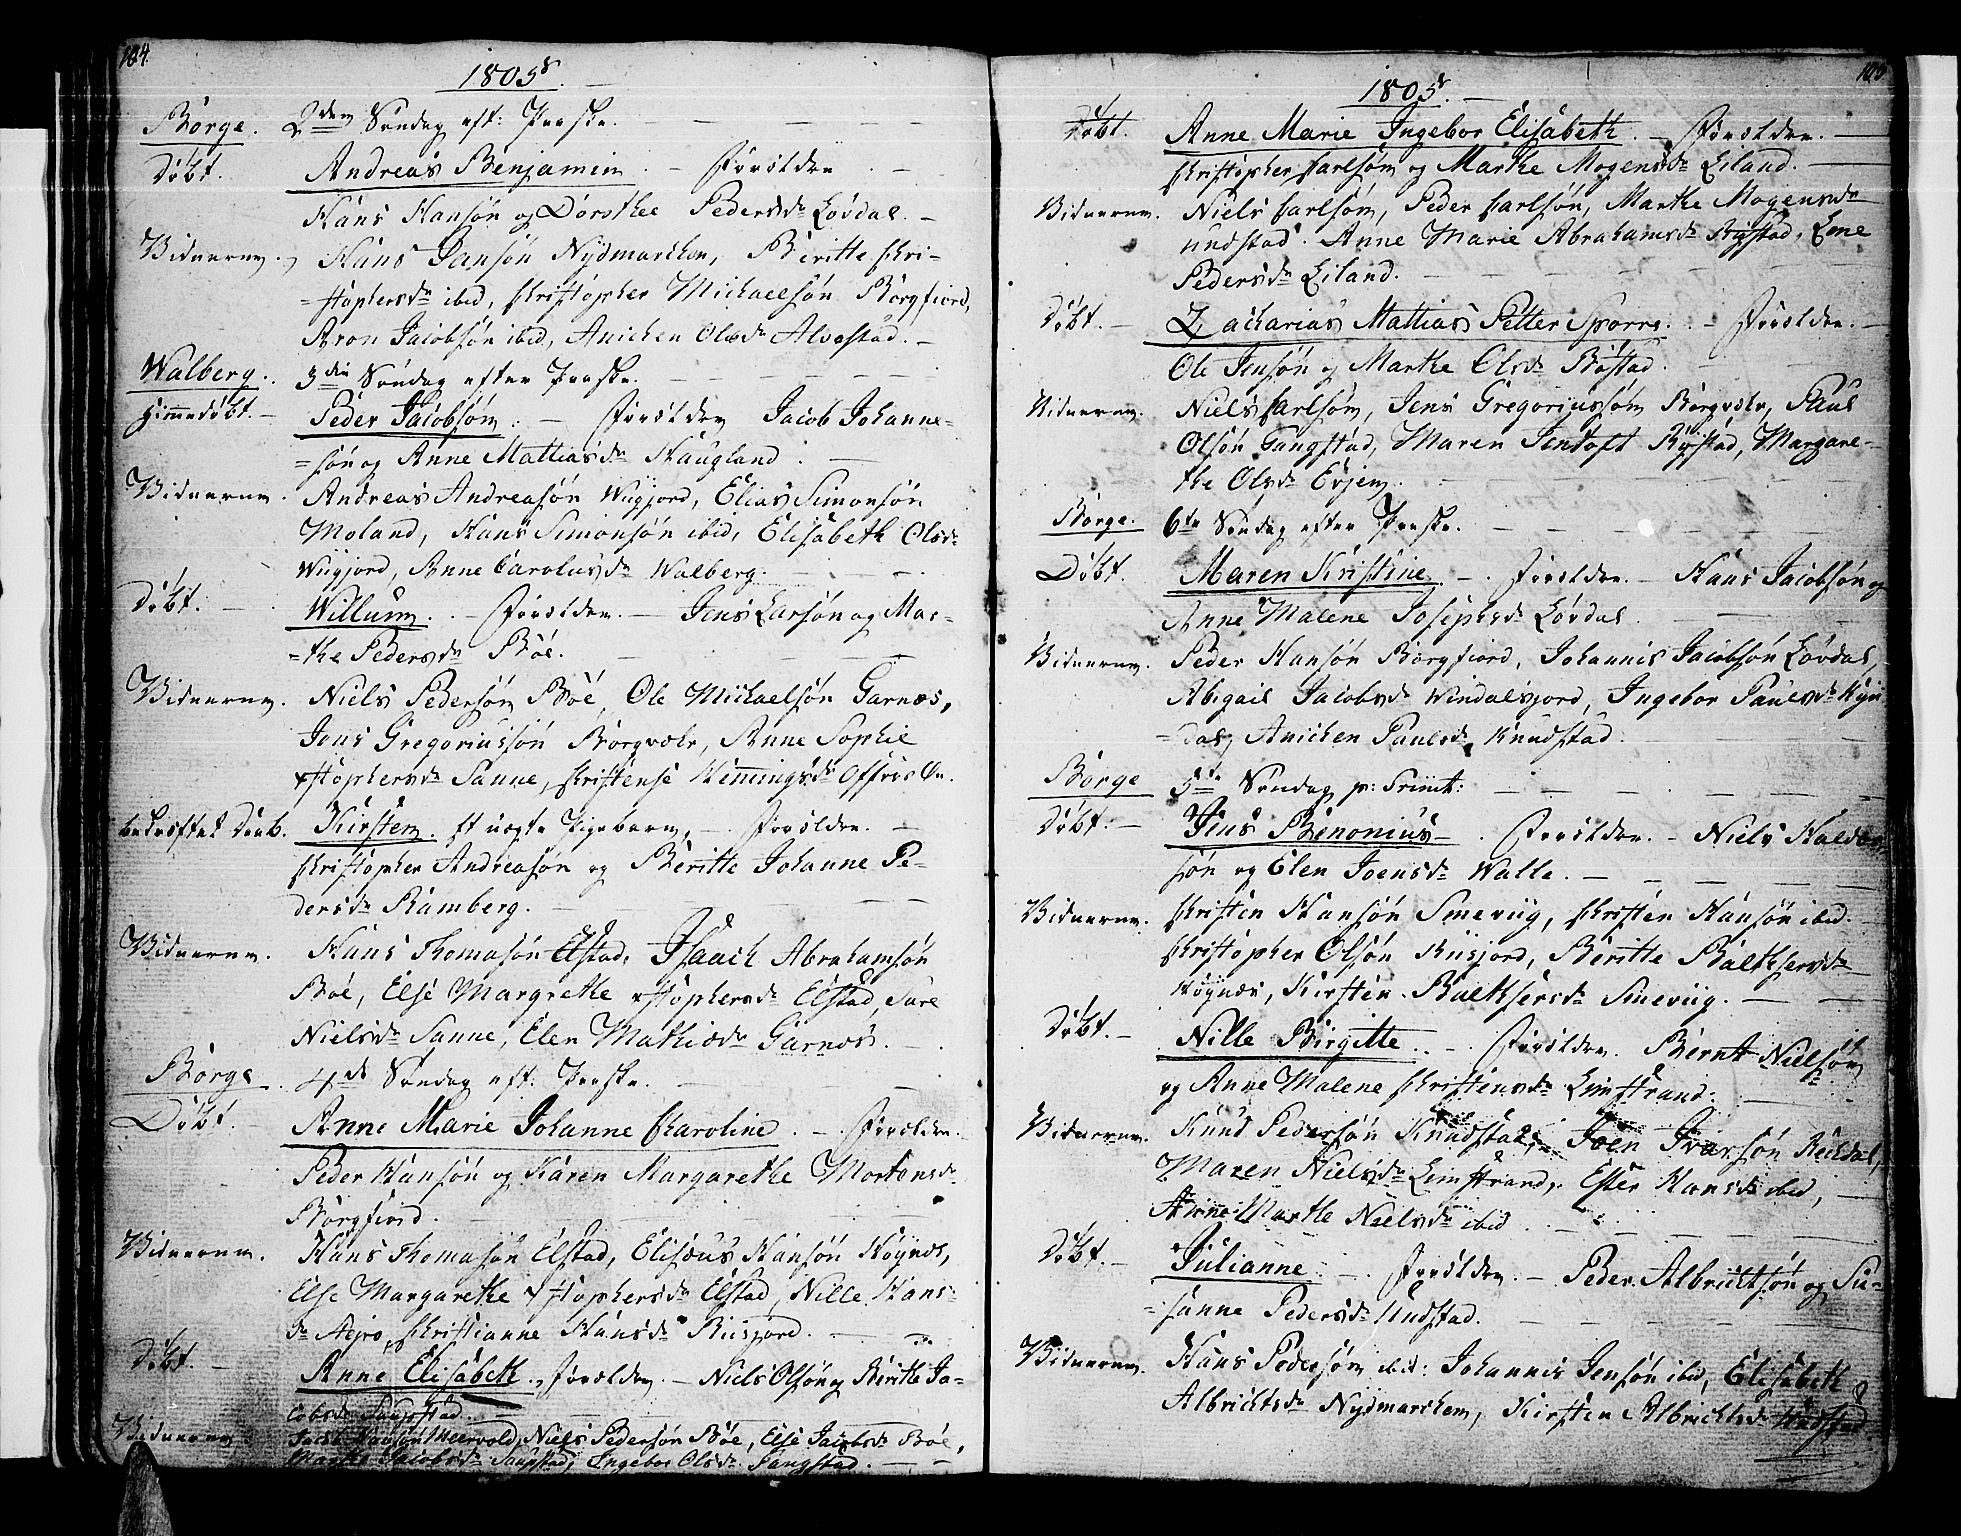 104.
1805
Borge. 2den Søndag eft: Paaske.
Døbt. Andreas Benjamin. - Forældre
Hans Hansøn og Dorothee Pedersdr Løvdal.
Vidnerne. Hans Jansøn Nÿdmarcken, Beritte Chri-
=stophersdr ibid, Christopher Michaelsøn Borgfiord,
Aron Jacobsøn ibid, Anichen Olsdr Alvestad.
Walberg. 3die Søndag efter Paaske.
Himedøbt. Peder Jacobsøn. - Forældre Jacob Johanne=
=søn og Anne Mathiasdr Haugland.
Vidnerne. Andreas Andreasøn Wiigjord, Elias Simonsøn
Moland, Hans Simonsøn ibid, Elisabeth Olsdr
Wiigjord, Anne Carolusdr Walberg.
Døbt. Willum. - Forældre. - Jens Larsøn og Mar-
=the Pedersdr Böe.
Vidnerne. Niels Pedersøn Böe, Ole Michaelsøn Garnæs,
Jens Gregoriussøn Borgvær, Anne Sophie
Xstophersdr Sanne, Christense Hemmingsdr Offersøe.
bekræftet Daab. Kirsten. Et uægte Pigebarn, - Forældre. -
Christopher Andreasøn og Beritte Johanne Pe-
dersdr Ramberg.
Vidnerne. Hans Thomasøn Elstad, Isaach Abrahamsøn
Böe, Else Margrethe Xstophersdr Elstad, Sare
Nielsdr Sanne, Elen Mathiædr Garnæs.
Borge. 4de Søndag eft: Paaske.
Døbt. Anne Marie Johanne Charoline. - Forældre.
Peder Hansøn og Karen Margarethe Mortensdr
Borgfiord.
Vidnerne. Hans Thomasøn Elstad, Elisæus Hansøn Høynæs,
Else Margarethe Xstophersdr Elstad, Nille Hans-
dr , Christianne Hansdr Riisjord.
Døbt. Anne Elisabeth. Forældre. - Niels Olsøn og Beritte Ja-
cobsdr Saupstad.
Vidnerne Jacob Hansøn , Niels Pedersøn Böe, Else Jacobsdr Böe,
Marthe Jacobsdr Saupstad, Ingebor Olsdr Tangstad.
105
1805
Døbt. Anne Marie Ingebor Elisabeth. - Forældre.
Christopher Carlsøn og Marthe Mogensdr Eiland.
Vidnerne. Niels Carlsøn, Peder Carlsøn, Marthe Mogensdr
Undstad. Anne Marie Abrahamsdr Bÿstad, Lene
Pedersdr Eiland.
Døbt. - Zacharias Mathias Petter Sporre. - Forældre.
Ole Jensøn og Marthe Olsdr Bøstad.
Vidnerne. Niels Carlsøn, Jens Gregoriussøn Borgvær, Paul
Olsøn Tangstad, Maren Jentoft Bÿstad, Margare-
the Olsdr Evjen.
Borge. 6te Søndag efter Paaske.
Døbt. Maren Kristine. - Forældre. - Hans Jacobsøn og
Anne Malene Josephsdr Løvdal.
Vidnerne. Peder Hansøn Borgfiord, Johannis Jacobsøn Løvdal,
Abigael Jacobsdr Windalsjord, Ingebor Paulsdr
=dal, Anichen Paulsdr Knudstad.
Borge 5te Søndag p: Trinit:
Døbt. - Jens Benonius. Forældre. - Niels Halder
søn og Elen Joensdr Walle.
Vidnerne. Christen Hansøn Smeviig, Christen Hansøn ibid.
Christopher Olsøn Riisjord, Beritte Balthsersdr
Høynæs, Kirsten Balthsersdr Smeviig.
Døbt. - Nille Birgitte. - Forældre. Bernt Nielsøn
og Anne Malene Christensdr Limstrand.
Vidnerne. Knud Pedersøn Knudstad, Joen Ivarsøn Reehdal,
Maren Nielsdr Limstrand, Ester Hansdr ibid,
Anne Marthe Nielsdr ibid.
Døbt. - Julianne. - Forældre. - Peder Albrichtsøn og Su-
=sanne Pedersdr Undstad.
Vidnerne. Hans Pedersøn ibid: Johannis Jensøn ibid, Elisabeth
Albrichtsdr Nÿdmarchen, Kirsten Albrichtsdr Undstad.